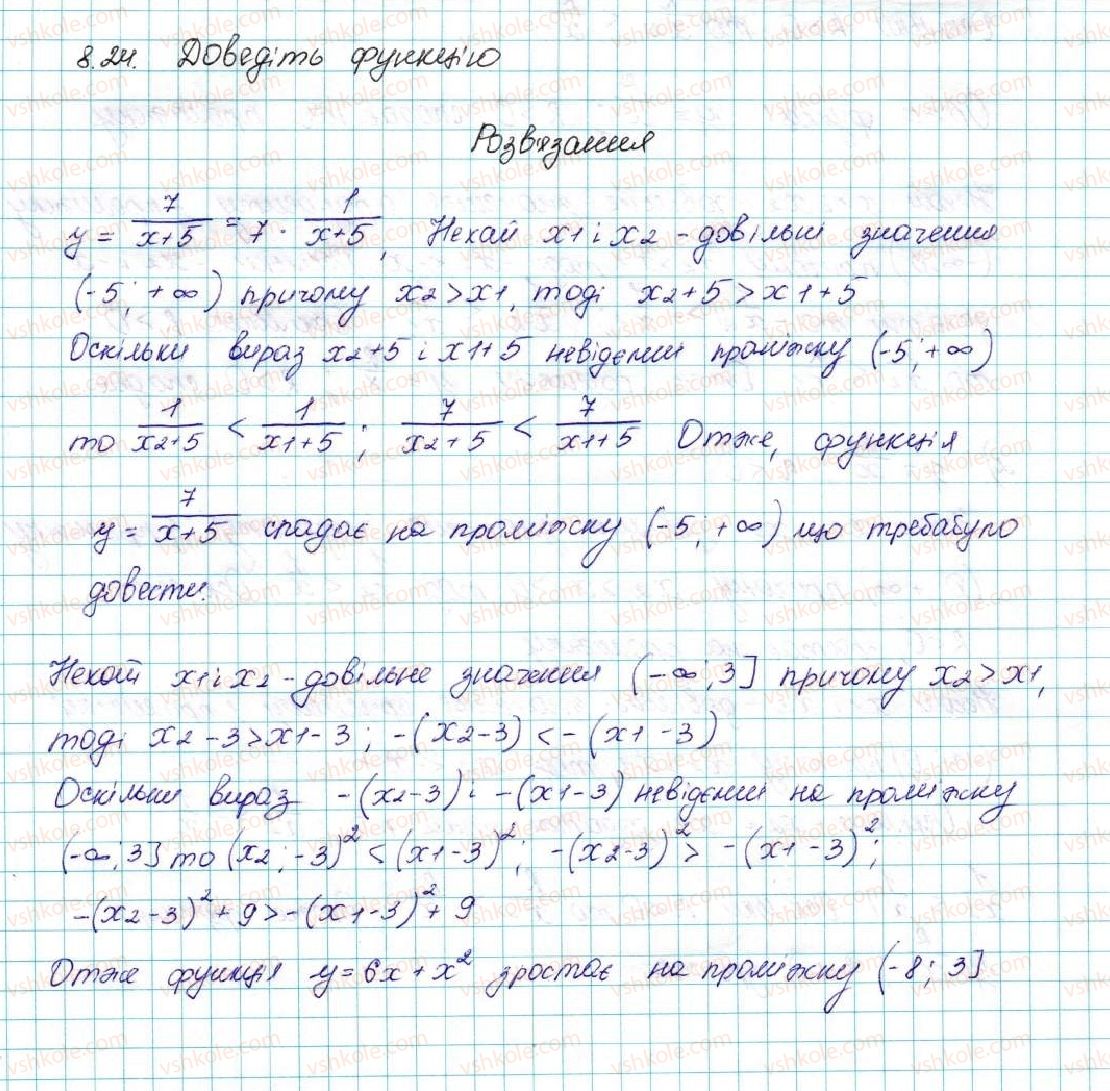 8.24. Доведіть функцію
Розв'язання
y = 7/(x+5) = 7 · 1/(x+5), Нехай x1 і x2 - довільні значення
(-5; +∞) причому x2 > x1, тоді x2+5 > x1+5
Оскільки вираз x2+5 і x1+5 невідємні проміжку (-5; +∞)
то 1/(x2+5) < 1/(x1+5); 7/(x2+5) < 7/(x1+5) Отже, функція
y = 7/(x+5) спадає на проміжку (-5; +∞) що требабуло
довести.
Нехай x1 і x2 - довільне значення (-∞; 3] причому x2 > x1,
тоді x2 - 3 > x1 - 3; -(x2-3) < -(x1-3)
Оскільки вираз -(x2-3) і -(x1-3) невідємні на проміжку
(-∞; 3] то (x2; -3)² < (x1-3)²; -(x2-3)² > -(x1-3)²;
-(x2-3)² + 9 > -(x1-3)² + 9
Отже функція y = 6x + x² зростає на проміжку (-8; 3]